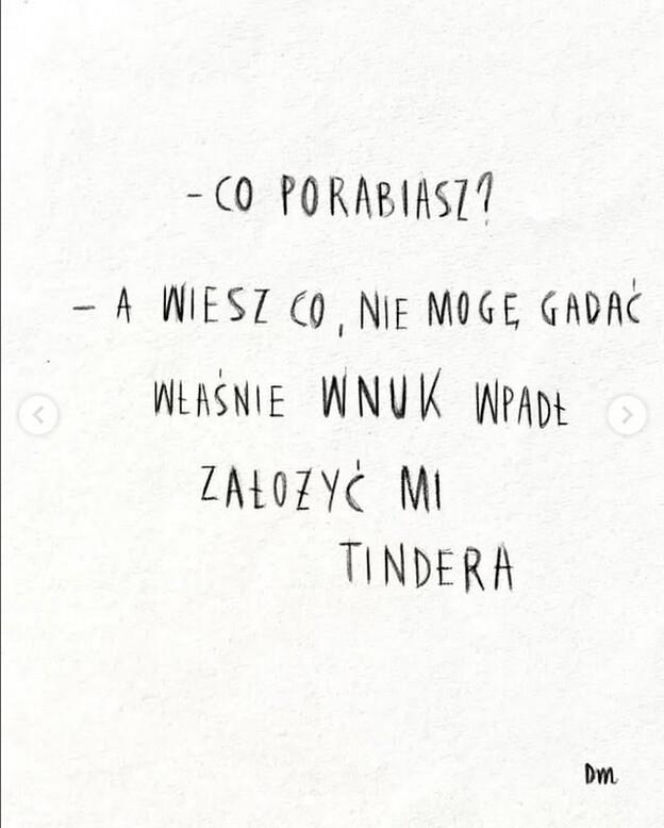 - CO PORABIASZ?
- A WIESZ CO, NIE MOGĘ GADAĆ
WŁAŚNIE WNUK WPADŁ
ZAŁOŻYĆ MI
TINDERA
Dm